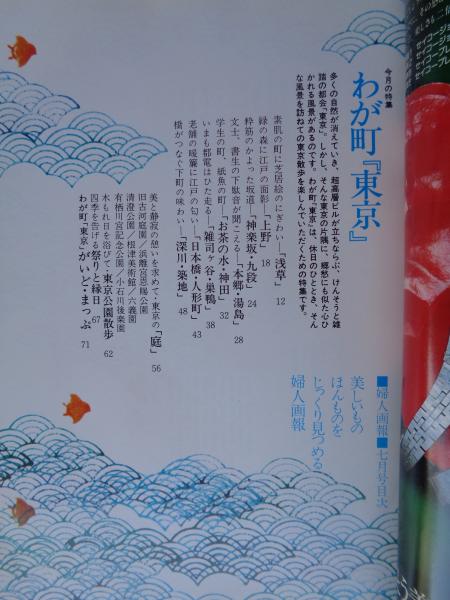 ■婦人画報■七月号目次
美しいもの
ほんものを
じっくり見つめる
婦人画報
今月の特集
わが町『東京』
多くの自然が消えていき、超高層ビルが立ちならぶ、けんそうと雑
踏の都会「東京」。しかし、そんな東京の片隅に、郷愁にも似た心ひ
かれる風景があるのです。わが町『東京』は、休日のひととき、そん
な風景を訪ねての東京散歩を楽しんでいただくための特集です。
素肌の町に芝居絵のにぎわい―「浅草」 12
緑の森に江戸の面影―「上野」 18
粋筋のかよった坂道―「神楽坂・九段」 24
文士、書生の下駄音が聞こえる―「本郷・湯島」 28
学生の町、紙魚の町―「お茶の水・神田」 32
いまも都電はひた走る―「雑司ヶ谷・巣鴨」 38
老舗の暖簾に江戸の匂い―「日本橋・人形町」 43
橋がつなぐ下町の味わい―「深川・築地」 48
美と静寂の憩いを求めて・東京の「庭」 56
旧古河庭園／浜離宮恩賜公園
清澄公園／根津美術館／六義園
有栖川宮記念公園／小石川後楽園
木もれ日を浴びて・東京公園散歩 62
四季を告げる祭りと縁日 67
わが町『東京』がいど・まっぷ 71